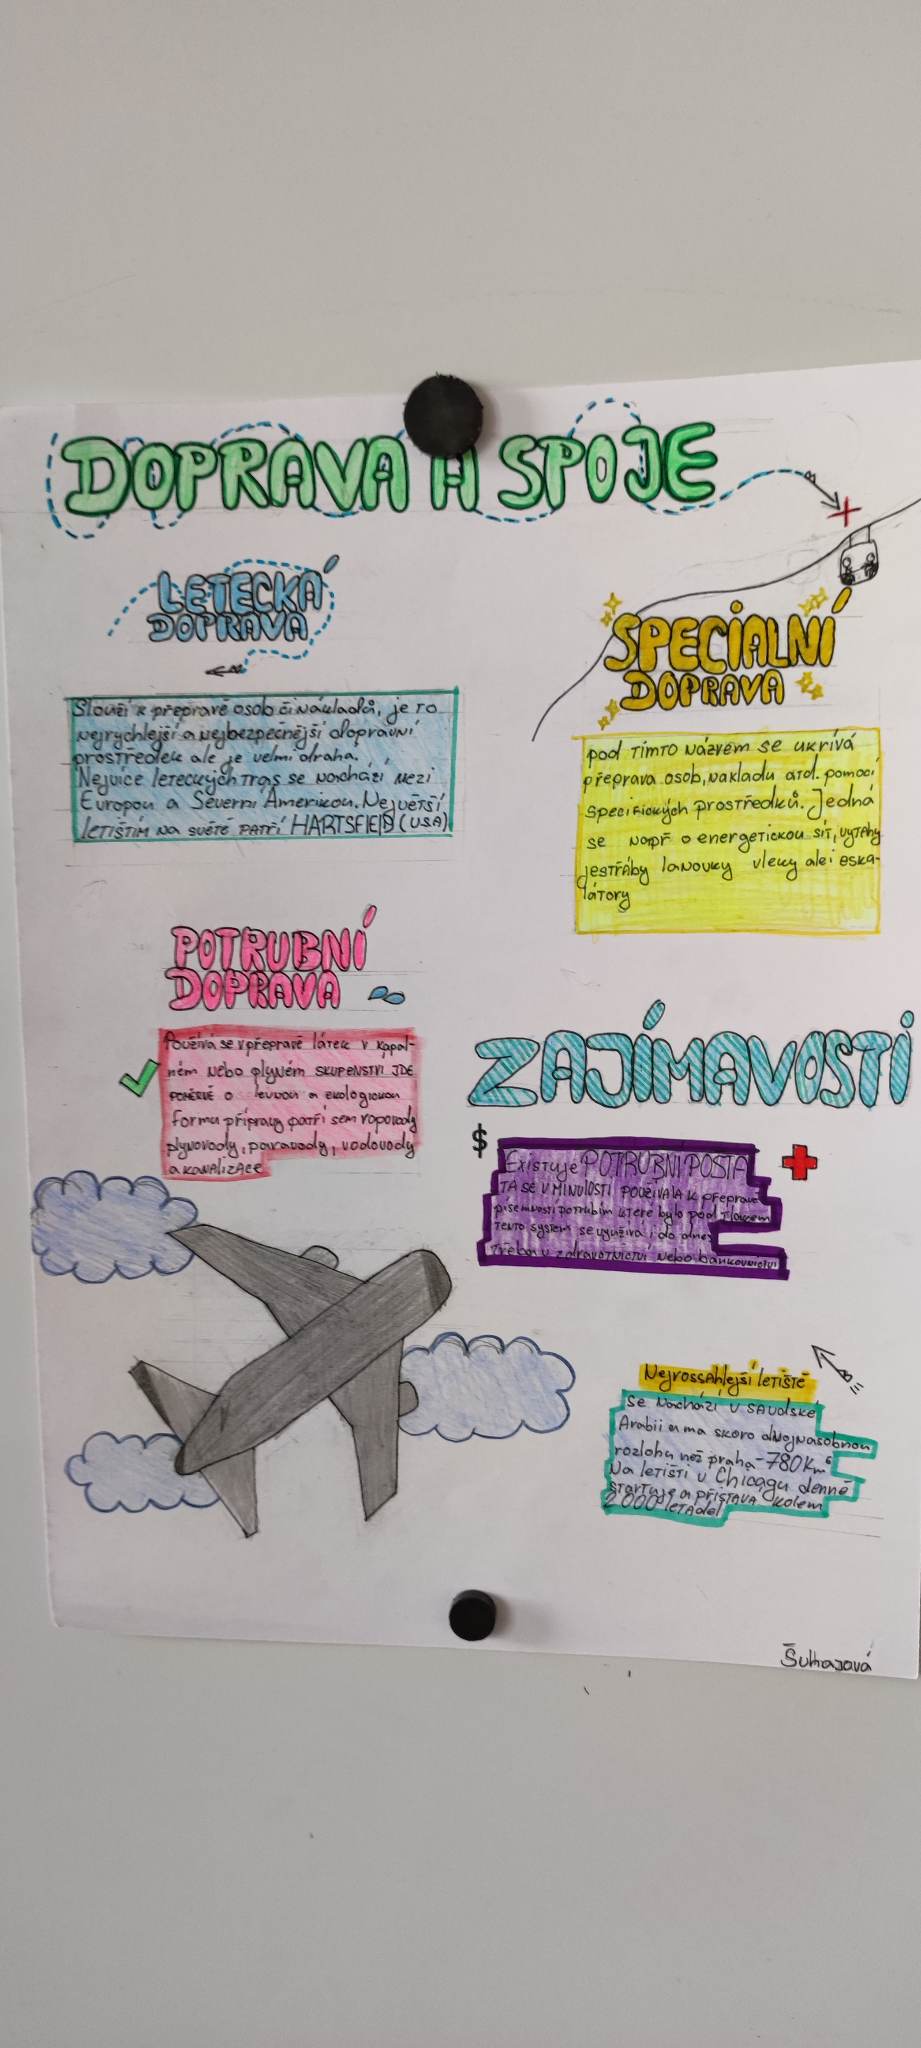 DOPRAVA A SPOJE
LETECKÁ
DOPRAVA
Slouží k přepravě osob či nákladů, je to
nejrychlejší a nejbezpečnější dopravní
prostředek ale je velmi drahá.
Nejvíce leteckých tras se nachází mezi
Evropou a Severní Amerikou. Největší
letištím na světě patří HARTSFIELD (USA)
SPECIALNÍ
DOPRAVA
pod tímto názvem se ukrívá
přeprava osob, nakladu atd. pomocí
specifických prostředků. Jedná
se např o energetickou síť, výtahy
jestřáby lanovky vleky ale i eska-
látory
POTRUBNÍ
DOPRAVA
Používá se v přepravě látek v kapal-
ném nebo plyném skupenství JDE
poměrně o levnou a ekologickou
formu přípravy patří sem ropovody
plynovody, parovody, vodovody
a kanalizace
ZAJÍMAVOSTI
$
Existuje POTRUBNÍ POSTA
TA SE V MINULOSTI POUŽÍVALA K přepravě
písemností potrubím které bylo pod tlakem
tento system se využívá i do dnes
třeba v zdravotnictví nebo bankovnictví
Nejrossahlejší letiště
se nachází v saudské
Arabii a ma skoro dvojnasobnou
rozlohu než praha - 780 km²
Na letišti v Chicagu denně
startuje a přistává kolem
2000 letadel
Šuhajová